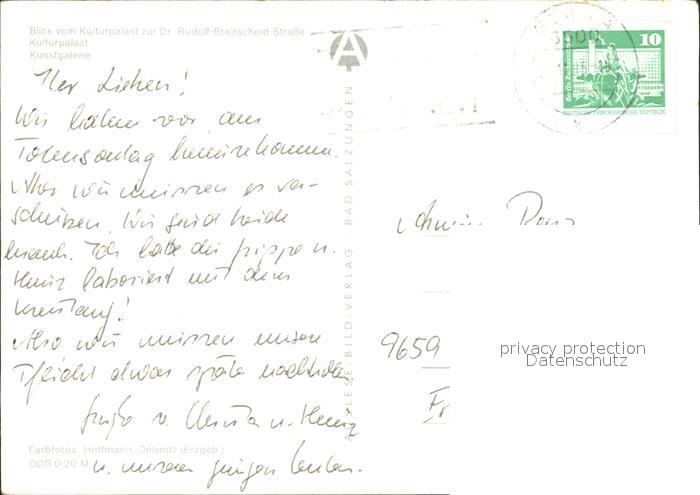 Blick vom Kulturpalast zur Dr.-Rudolf-Breitscheid-Straße
Kulturpalast
Kunstgalerie
Ihr Lieben!
Wir haben vor, am
Totensonntag heimzukommen.
Aber wir müssen es ver-
schieben. Wir sind beide
krank. Ich hatte die Grippe u.
Heinz laboriert mit dem
Also wir müssen unsere
Pflicht etwas später nachholen
Grüße v. Christa u. Heinz
u. unseren jungen Leuten.
Farbfotos: Hoffmann, Oelsnitz (Erzgeb.)
DDR 0,20 M
AUSLESE-BILD-VERLAG BAD SALZUNGEN
A
10
DEUTSCHE DEMOKRATISCHE REPUBLIK
9659
privacy protection
Datenschutz